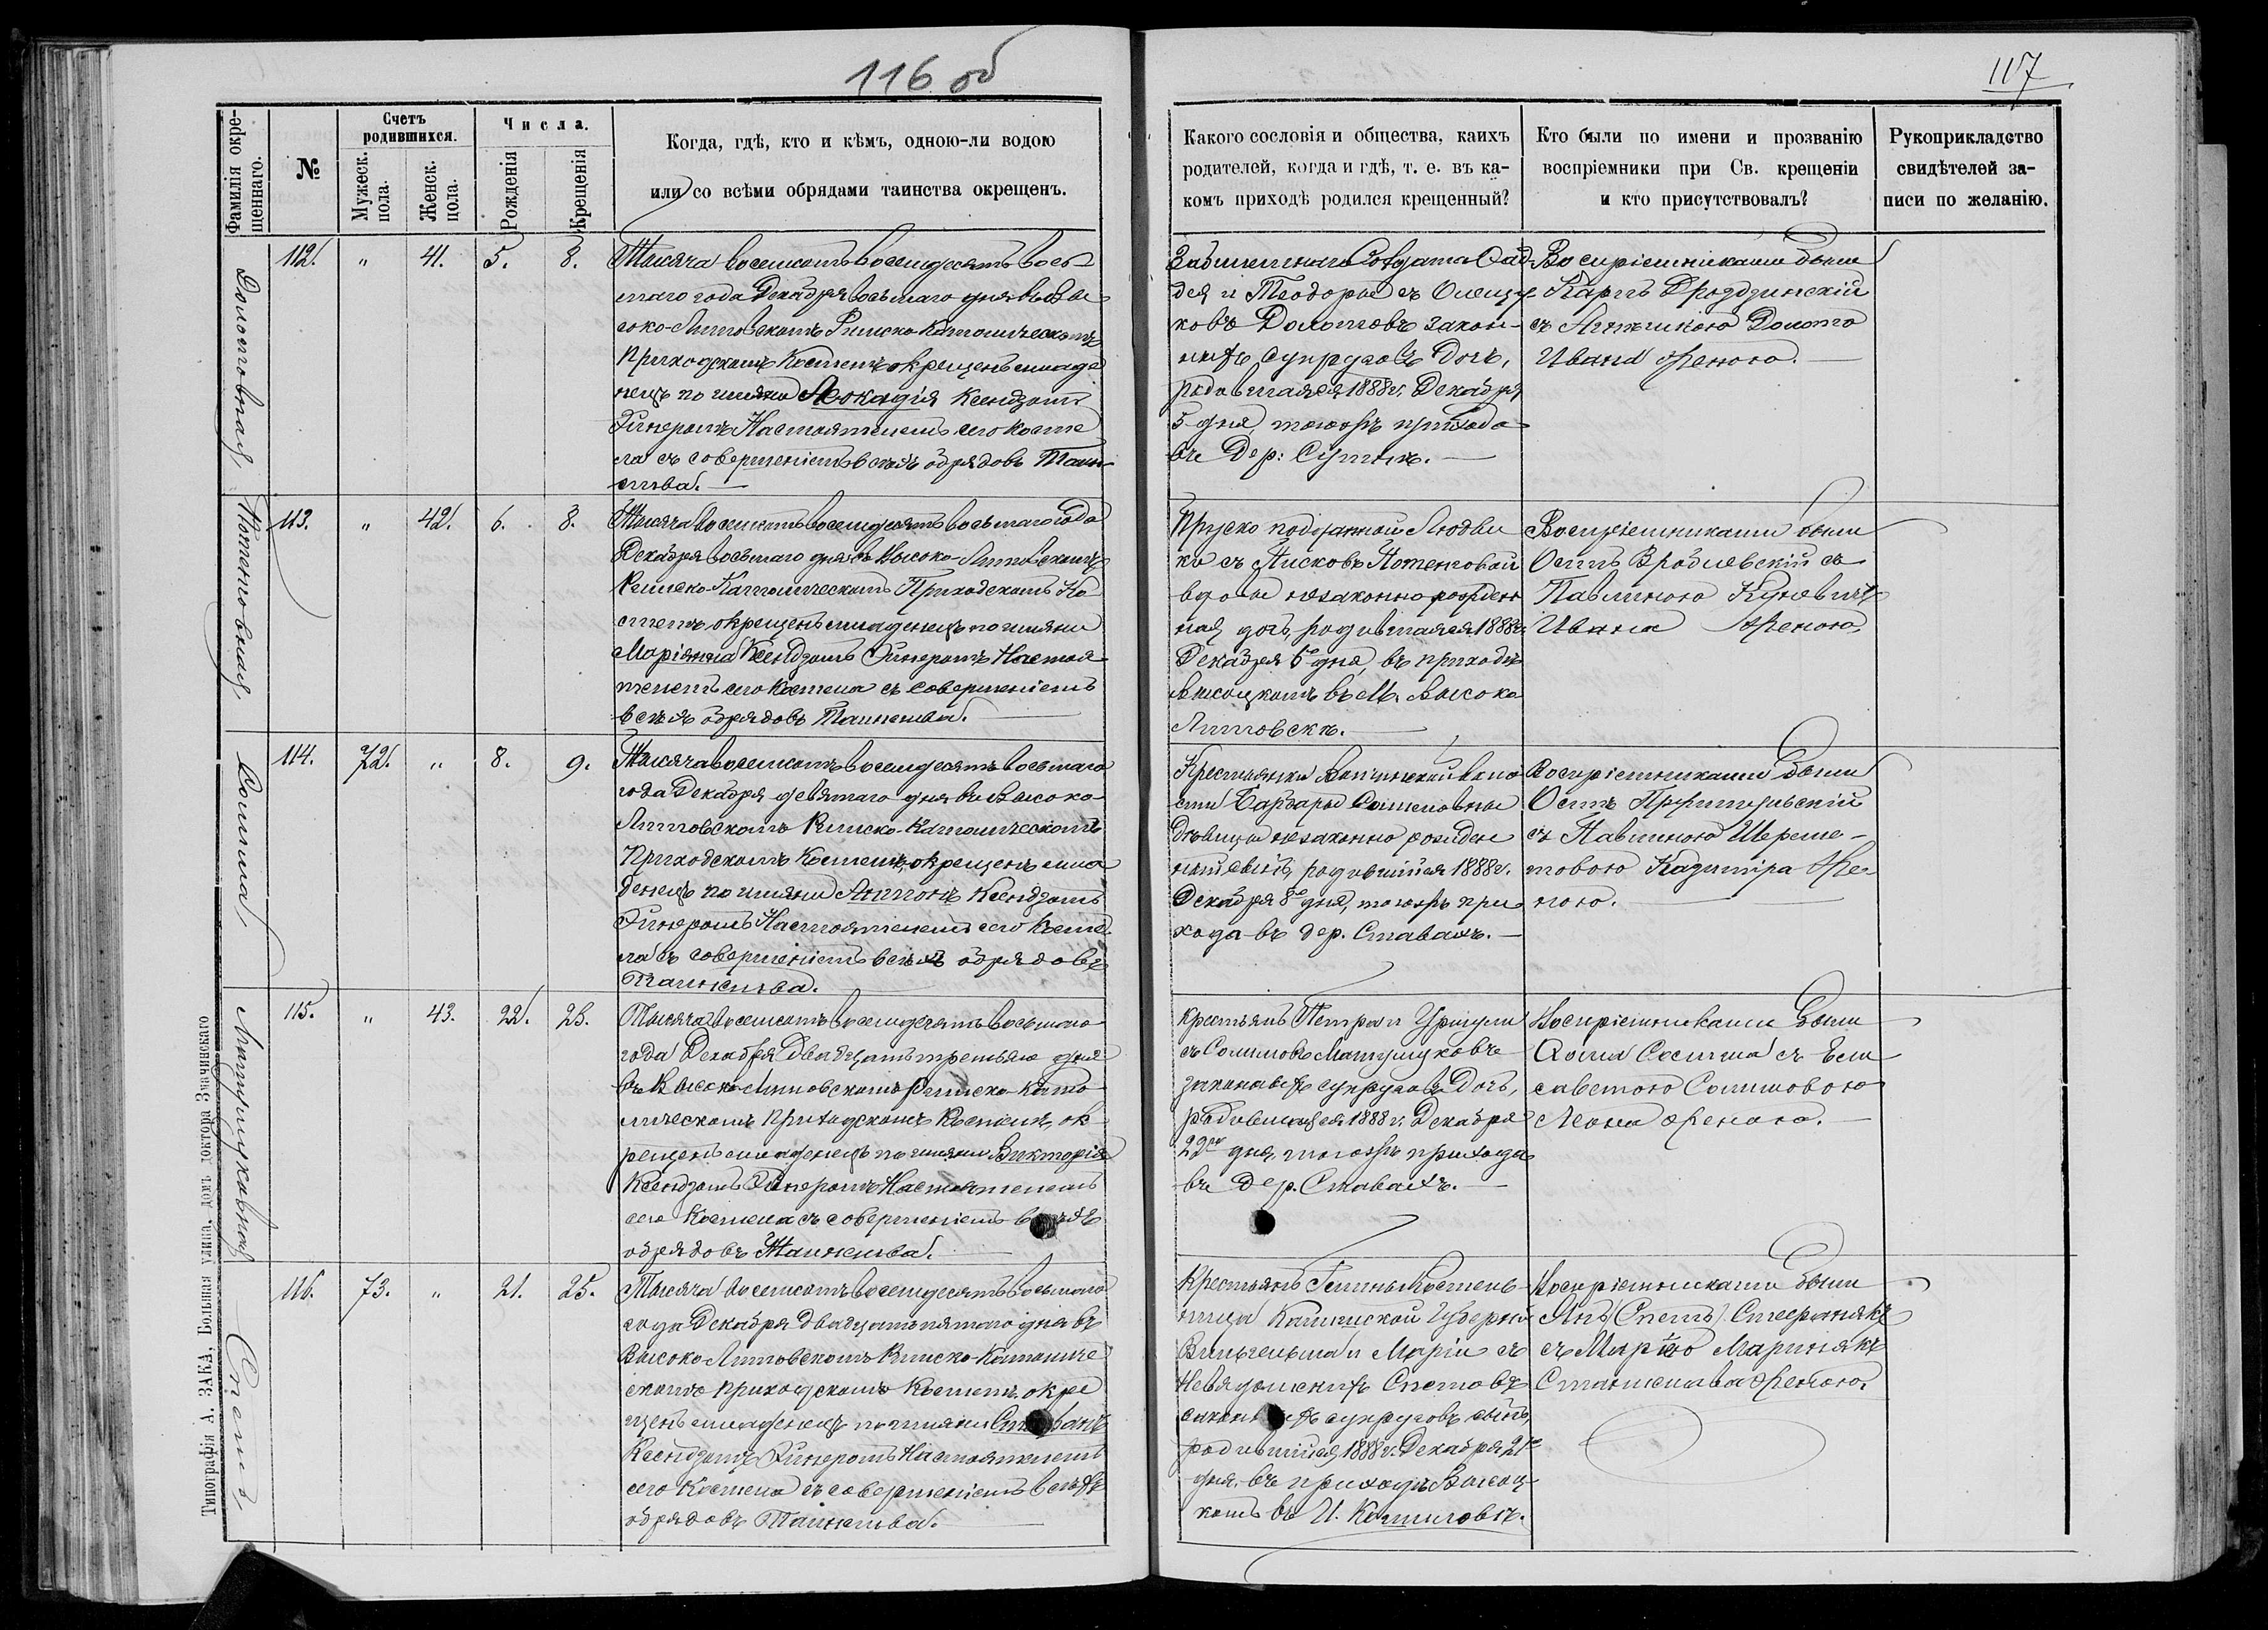 116 об
117
Фамилія окрещеннаго.
№
Счетъ родившихся.
Мужеск. пола.
Женск. пола.
Числа.
Рожденія
Крещенія
Когда, гдѣ, кто и кѣмъ, одною-ли водою
или со всѣми обрядами таинства окрещенъ.
Какого сословія и общества, каихъ
родителей, когда и гдѣ, т. е. въ ка-
комъ приходѣ родился крещенный?
Кто были по имени и прозванію
воспріемники при Св. крещеніи
и кто присутствовалъ?
Рукоприкладство
свидѣтелей за-
писи по желанію.
112. " 41. 5. 8.
Тысяча восемсотъ восемдесятъ вось
маго года Декабря восьмаго дня въ Вы
соко-Литовскомъ Римско-Католическомъ
Приходскомъ Костелѣ окрещенъ младе
нецъ по имяни Леокадія Ксендзомъ
Настоятелемъ сего Косте
ла съ совершеніемъ всѣхъ обрядовъ Таин-
ства.
Солдата
дея и Теодоры съ
ковъ Долотовъ закон-
ныхъ супруговъ дочь,
родившаяся 1888 г. Декабря
5 дня, тогожъ прихода
въ дер:
Воспріемниками были
Карпъ Дроздзинскій
съ Долото
Ивана женою.
113. " 42. 6. 8.
Тысяча восемсотъ восемдесятъ восьмаго года
Декабря восьмаго дня въ Высоко-Литовскомъ
Римско-Католическомъ Приходскомъ Ко
стелѣ окрещенъ младенецъ по имяни
Маріянна Ксендзомъ Настоя
телемъ сего Костела съ совершеніемъ
всѣхъ обрядовъ Таинства.
Пруско подданной Людви
ки съ Писковъ
вдовы незаконно рожден
ная дочь, родившаяся 1888 г.
Декабря 6 дня, въ приходѣ
Высоцкомъ въ М. Высоко
Литовскѣ.
Воспріемниками были
Осипъ Врублевскій съ
Павлиною
Ивана женою.
Сошма
114. 72. " 8. 9.
Тысяча восемсотъ восемдесятъ восьмаго
года Декабря девятаго дня въ Высоко-
Литовскомъ Римско-Католическомъ
Приходскомъ Костелѣ, окрещенъ мла
денецъ по имяни Антонъ Ксендзомъ
Настоятелемъ сего Косте
ла съ совершеніемъ всѣхъ обрядовъ
Таинства.
Крестьянки воло
сти Барбары
дѣвицы незаконно рожден
ный сынъ, родившійся 1888 г.
Декабря 8 дня, тогожъ при
хода въ дер. Ставахъ.
Воспріемниками были
Осипъ
съ Павлиною Шереме-
товою Казиміра же-
ною.
115. " 43. 22. 23.
Тысяча восемсотъ восемдесятъ восьмаго
года Декабря двадцать третьяго дня
въ Высоко-Литовскомъ Римско-Като
лическомъ Приходскомъ Костелѣ, ок
рещенъ младенецъ по имяни Викторія
Ксендзомъ Настоятелемъ
сего Костела съ совершеніемъ
обрядовъ Таинства.
Крестьянъ Петра и Уршули
съ
законныхъ супруговъ дочь,
родившаяся 1888 г. Декабря
22 дня, тогожъ прихода
въ дер. Ставахъ.
Воспріемниками были
съ Ели
саветою
Леона женою.
Спетъ
116. 73. " 21. 25.
Тысяча восемсотъ восемдесятъ восьмаго
года Декабря двадцать пятаго дня въ
Высоко-Литовскомъ Римско-Католиче
скомъ Приходскомъ Костелѣ окре
щенъ младенецъ по имяни
Ксендзомъ Настоятелемъ
сего Костела съ совершеніемъ всѣхъ
обрядовъ Таинства.
Крестьянъ Гмины
Губерніи
Вильгельма и Маріи съ
Спетовъ
супруговъ сынъ,
родившійся 1888 г. Декабря 21
дня, въ приходѣ Высоц
комъ въ И.
Воспріемниками были
Янъ
съ Маріею Мариняк
Станислава женою.
Типографія А. ЗАКА, Вольная улица, домъ доктора Значинскаго